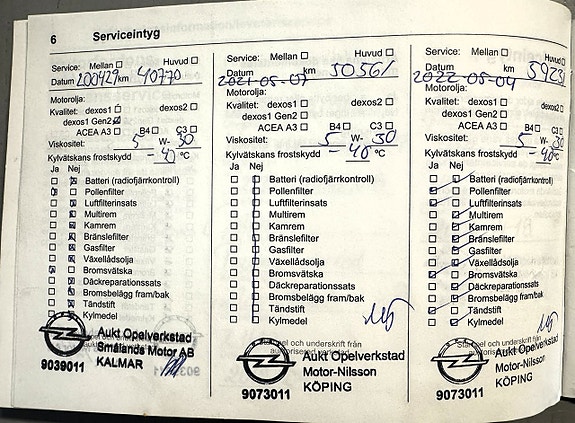 6 Serviceintyg
Service: Mellan ☐ Huvud ☐
Datum 200429 km 40770
Motorolja:
Kvalitet: dexos1 ☐ dexos2 ☐
dexos1 Gen2 ☑
ACEA A3 ☐ B4 ☐ C3 ☐
Viskositet: 5 W- 30
Kylvätskans frostskydd -40 °C
Ja Nej
Batteri (radiofjärrkontroll)
Pollenfilter
Luftfilterinsats
Multirem
Kamrem
Bränslefilter
Gasfilter
Växellådsolja
Bromsvätska
Däckreparationssats
Bromsbelägg fram/bak
Tändstift
Kylmedel
Aukt Opelverkstad
Smålands Motor AB
KALMAR
9039011
Service: Mellan ☐ Huvud ☐
Datum 2021-05-07 km 50561
Motorolja:
Kvalitet: dexos1 ☐ dexos2 ☐
dexos1 Gen2 ☐
ACEA A3 ☐ B4 ☐ C3 ☐
Viskositet: 5 W- 30
Kylvätskans frostskydd -40 °C
Ja Nej
Batteri (radiofjärrkontroll)
Pollenfilter
Luftfilterinsats
Multirem
Kamrem
Bränslefilter
Gasfilter
Växellådsolja
Bromsvätska
Däckreparationssats
Bromsbelägg fram/bak
Tändstift
Kylmedel
Stämpel och underskrift från
Aukt Opelverkstad
Motor-Nilsson
KÖPING
9073011
Service: Mellan ☐ Huvud ☐
Datum 2022-05-04 km
Motorolja:
Kvalitet: dexos1 ☐ dexos2 ☐
dexos1 Gen2 ☐
ACEA A3 ☐ B4 ☐ C3 ☐
Viskositet: 5 W- 30
Kylvätskans frostskydd -40 °C
Ja Nej
Batteri (radiofjärrkontroll)
Pollenfilter
Luftfilterinsats
Multirem
Kamrem
Bränslefilter
Gasfilter
Växellådsolja
Bromsvätska
Däckreparationssats
Bromsbelägg fram/bak
Tändstift
Kylmedel
Aukt Opelverkstad
Motor-Nilsson
KÖPING
9073011